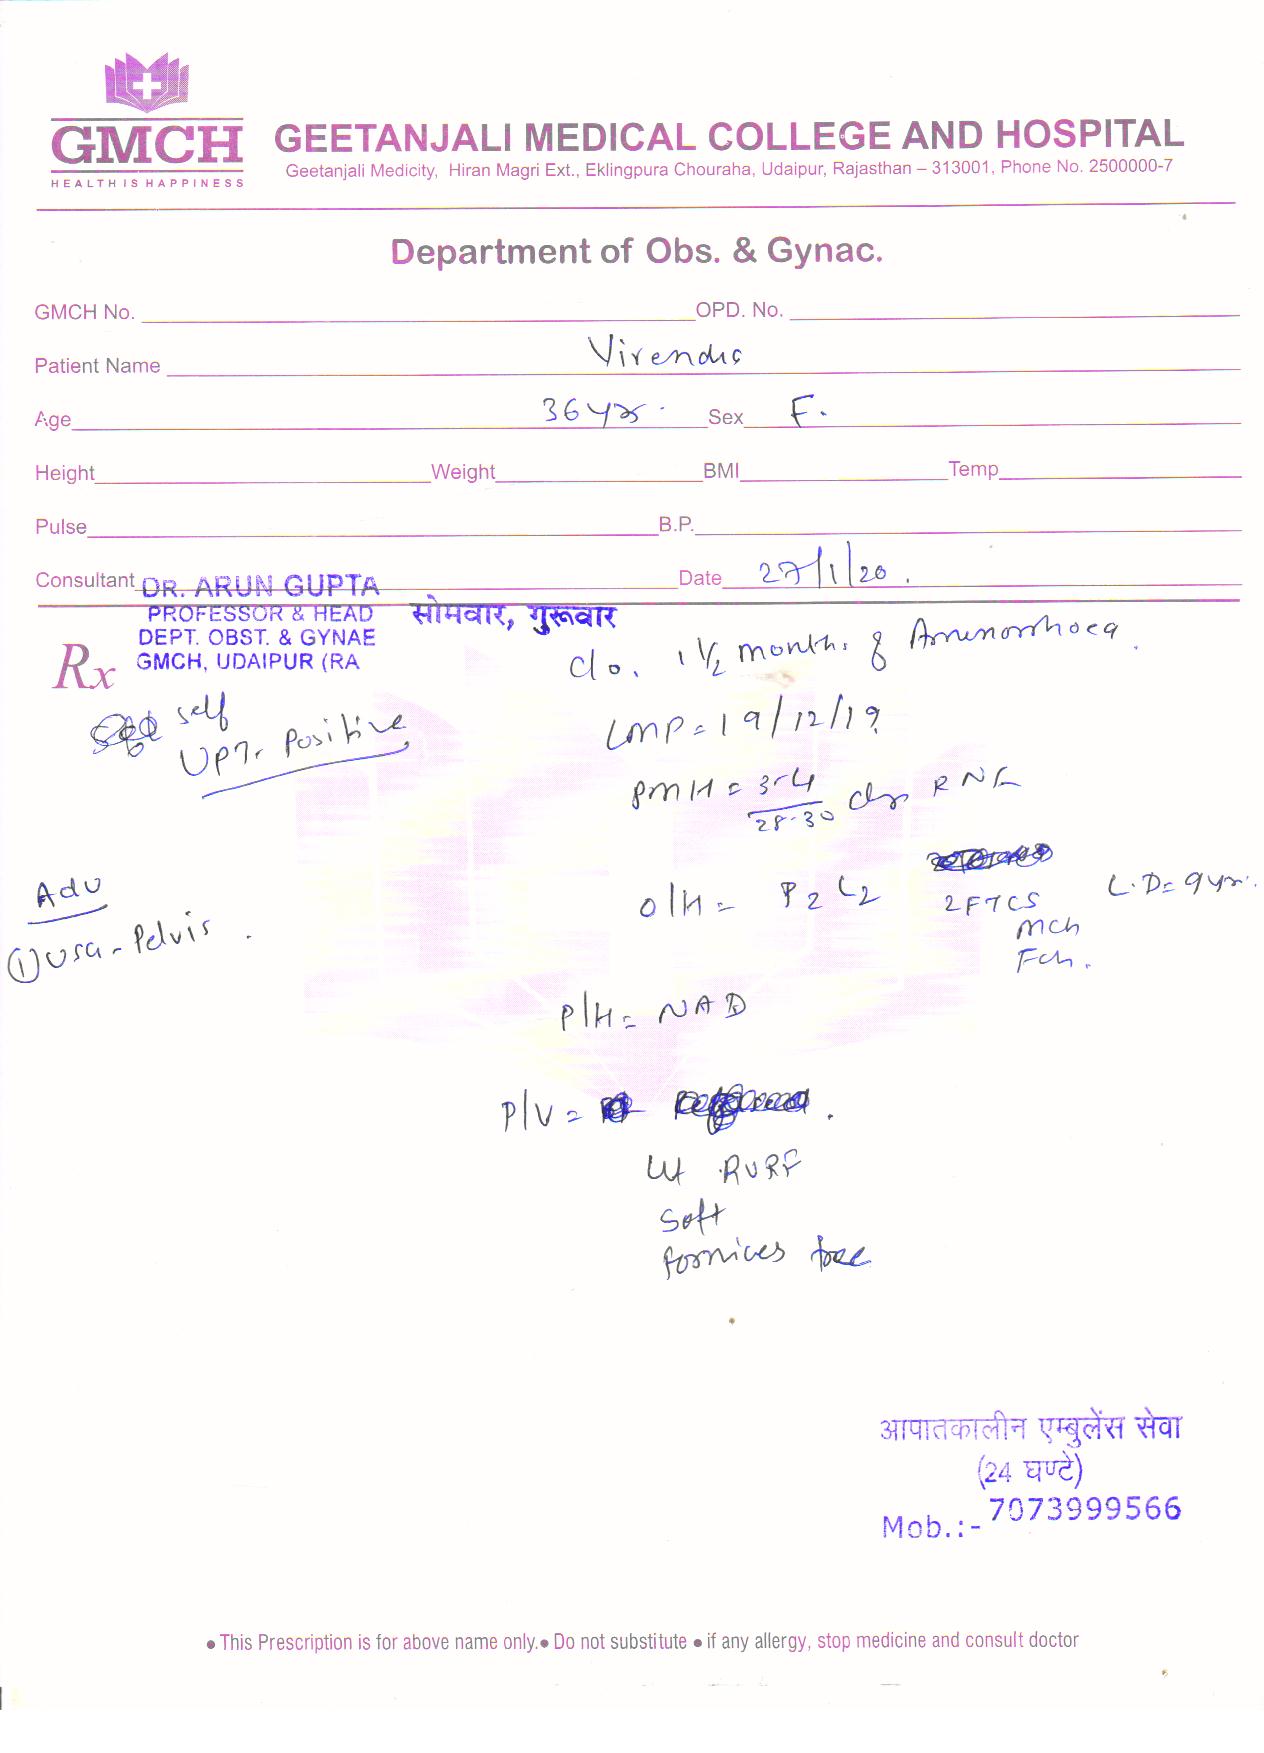 GMCH
HEALTH IS HAPPINESS
GEETANJALI MEDICAL COLLEGE AND HOSPITAL
Geetanjali Medicity, Hiran Magri Ext., Eklingpura Chouraha, Udaipur, Rajasthan – 313001, Phone No. 2500000-7
Department of Obs. & Gynac.
GMCH No. OPD. No.
Patient Name Virendra
Age 36 yrs. Sex F.
Height Weight BMI Temp
Pulse B.P.
Consultant DR. ARUN GUPTA Date 27/1/20.
PROFESSOR & HEAD सोमवार, गुरूवार
DEPT. OBST. & GYNAE
GMCH, UDAIPUR (RA
Rx
c/o. 1 1/2 months of Amenorrhoea.
self
UPT- Positive
LMP = 19/12/19
PMH = 3-4/28-30 days R N
O/H = P2 L2 2 FTCS L.D = 9 yrs.
Mch
Fch.
Adv
① USG - Pelvis.
P/H = NAD
P/V =
Ut RVRF
Soft
fornices free
आपातकालीन एम्बुलेंस सेवा
(24 घण्टे)
Mob.:- 7073999566
• This Prescription is for above name only. • Do not substitute • if any allergy, stop medicine and consult doctor